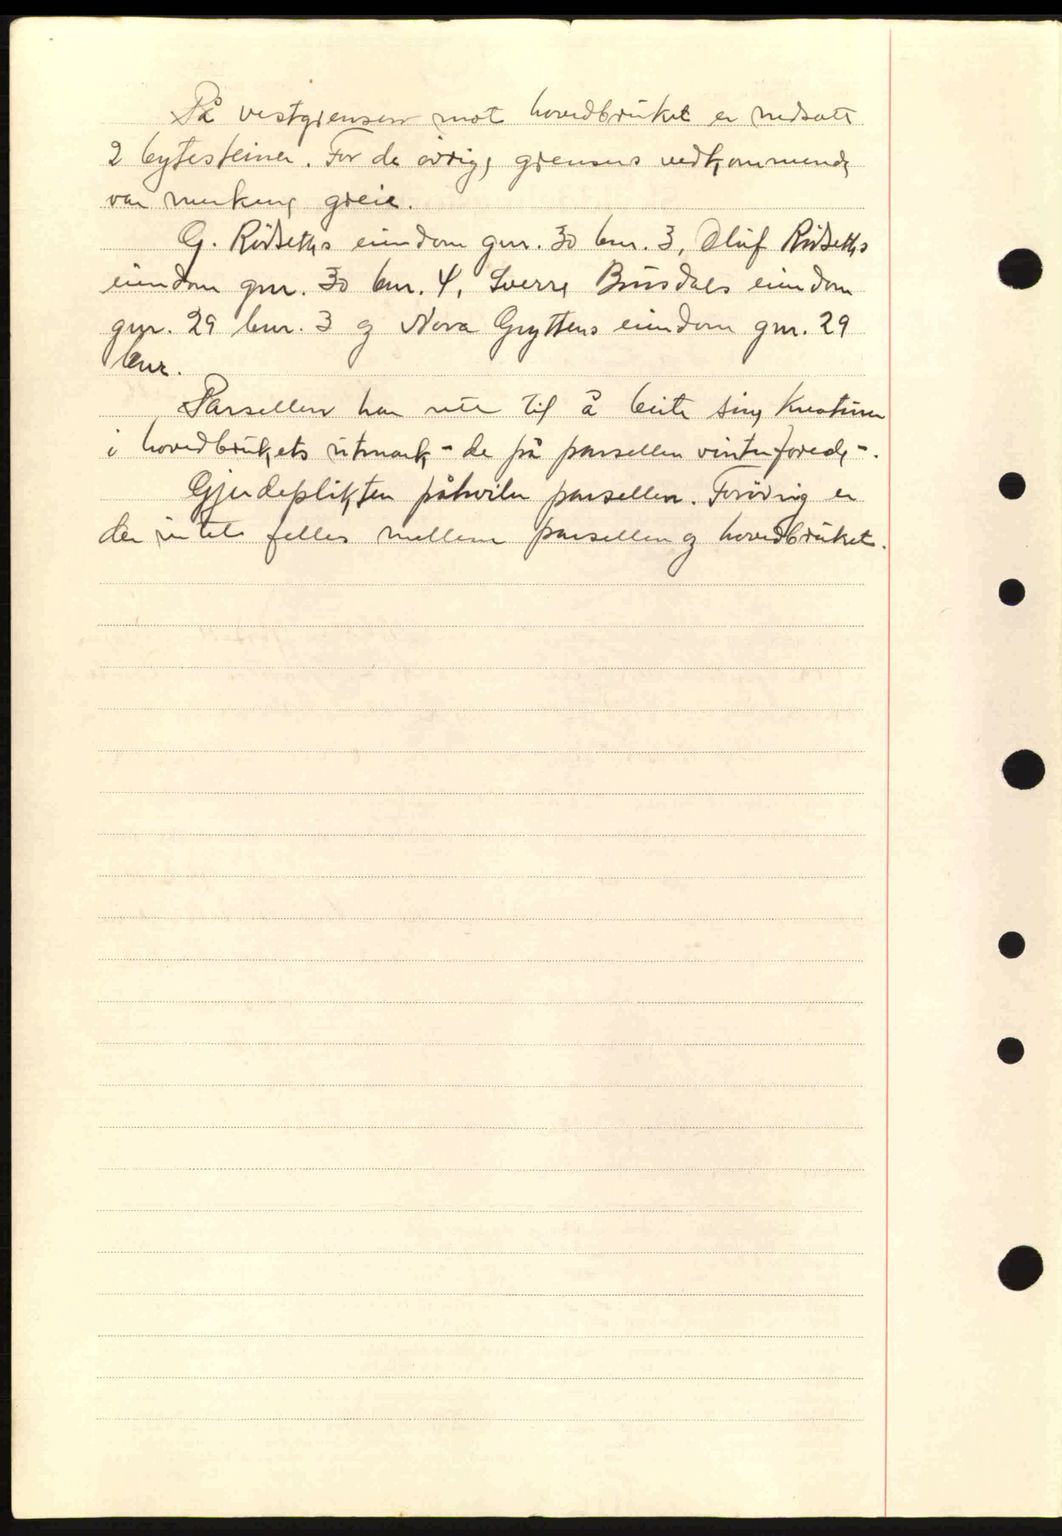 På vestgrensen mot hovedbruket er nedsatt
2 bytesteiner. For de övrige grensers vedkommende
var merking greie.
G. Rödseths eiendom gnr. 30 bnr. 3, Oluf Rödseths
eiendom gnr. 30 bnr. 4, Sverre Busdals eiendom
gnr. 29 bnr. 3 og Nora Gryttens eiendom gnr. 29
bnr.
Parsellen har rett til å beite sine kreaturer
i hovedbrukets utmark - de på parsellen vinterforede -.
Gjerdeplikten påhviler parsellen. Forövrig er
der intet felles mellem parsellen og hovedbruket.